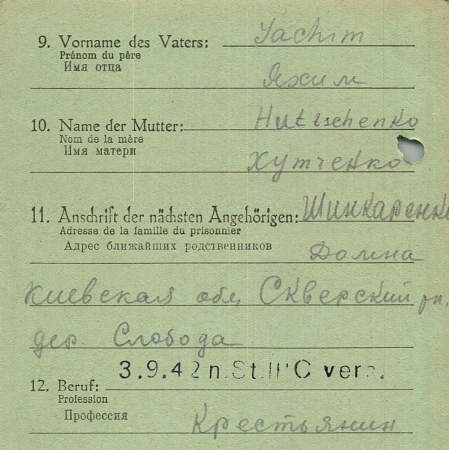 9. Vorname des Vaters: Jachim
Prénom du père
Имя отца
Яхим
10. Name der Mutter: Huttschenko
Nom de la mère
Имя матери
Хутченко
11. Anschrift der nächsten Angehörigen: Шинкаренко
Adresse de la famille du prisonnier
Адрес ближайших родственников
Домна
Киевская обл, Сквирский рн,
дер. Слобода
3.9.42 n. St. II C vers.
12. Beruf:
Profession
Профессия
Крестьянин